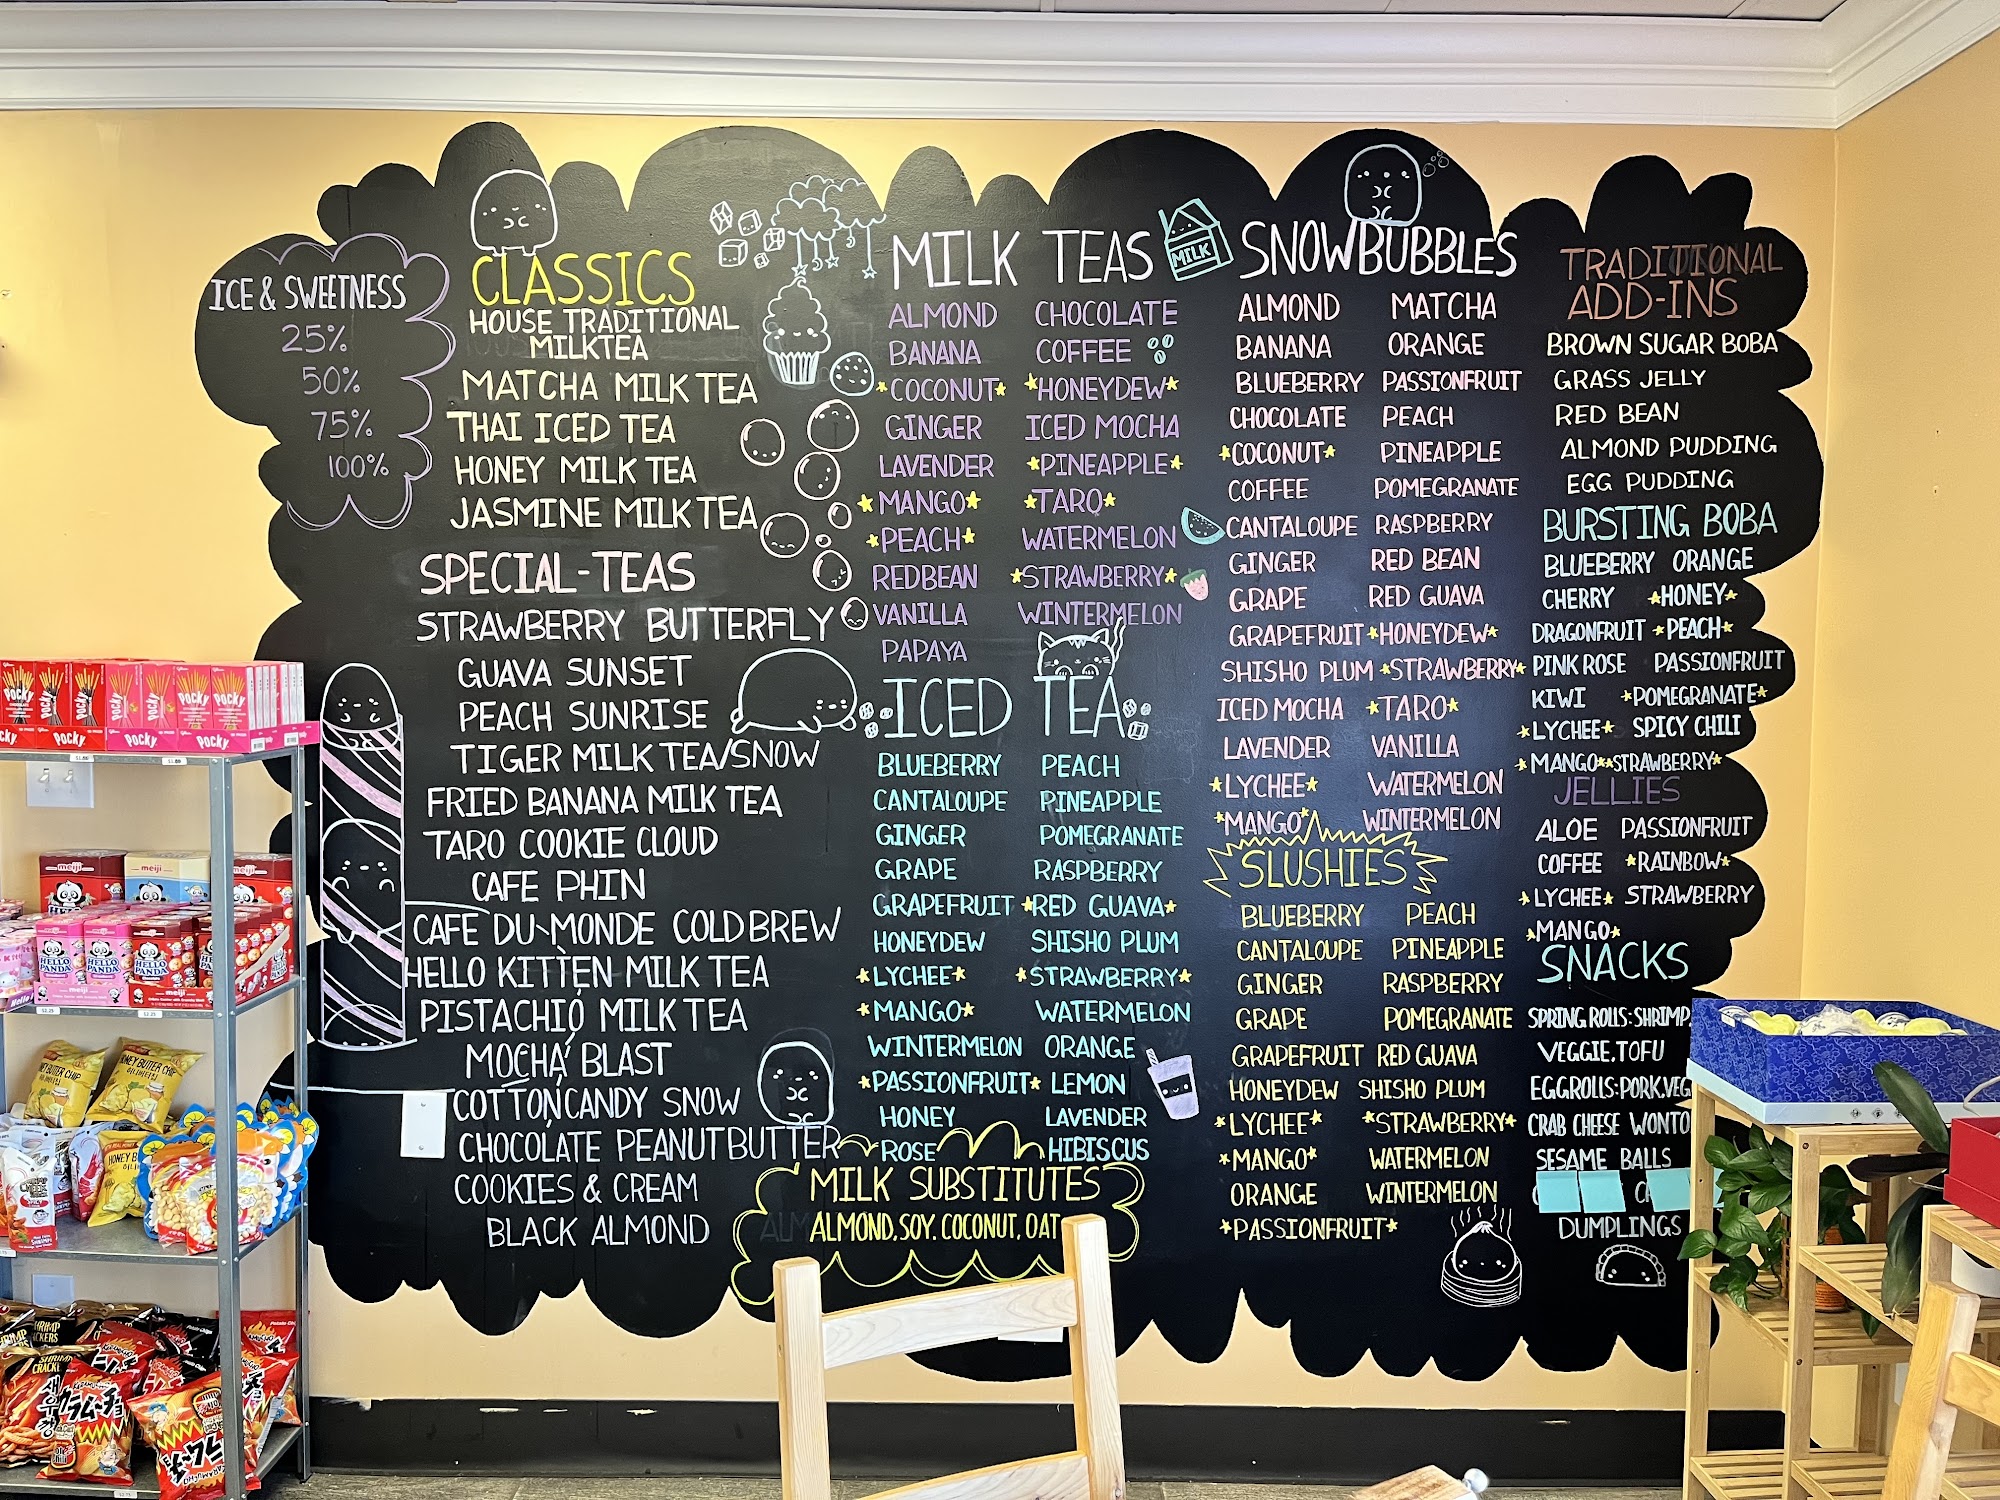 ICE & SWEETNESS
25%
50%
75%
100%
CLASSICS
HOUSE TRADITIONAL
MILKTEA
MATCHA MILK TEA
THAI ICED TEA
HONEY MILK TEA
JASMINE MILK TEA
SPECIAL-TEAS
STRAWBERRY BUTTERFLY
GUAVA SUNSET
PEACH SUNRISE
TIGER MILK TEA/SNOW
FRIED BANANA MILK TEA
TARO COOKIE CLOUD
CAFE PHIN
CAFE DU-MONDE COLDBREW
HELLO KITTEN MILK TEA
PISTACHIO MILK TEA
MOCHA BLAST
COTTON CANDY SNOW
CHOCOLATE PEANUTBUTTER
COOKIES & CREAM
BLACK ALMOND
MILK TEAS
MILK
ALMOND CHOCOLATE
BANANA COFFEE
*COCONUT* *HONEYDEW*
GINGER ICED MOCHA
LAVENDER *PINEAPPLE*
*MANGO* *TARO*
*PEACH* WATERMELON
REDBEAN *STRAWBERRY*
VANILLA WINTERMELON
PAPAYA
ICED TEA
BLUEBERRY PEACH
CANTALOUPE PINEAPPLE
GINGER POMEGRANATE
GRAPE RASPBERRY
GRAPEFRUIT *RED GUAVA*
HONEYDEW SHISHO PLUM
*LYCHEE* *STRAWBERRY*
*MANGO* WATERMELON
WINTERMELON ORANGE
*PASSIONFRUIT* LEMON
HONEY LAVENDER
ROSE HIBISCUS
MILK SUBSTITUTES
ALMOND, SOY. COCONUT, OAT
SNOWBUBBLES
ALMOND MATCHA
BANANA ORANGE
BLUEBERRY PASSIONFRUIT
CHOCOLATE PEACH
*COCONUT* PINEAPPLE
COFFEE POMEGRANATE
CANTALOUPE RASPBERRY
GINGER RED BEAN
GRAPE RED GUAVA
GRAPEFRUIT *HONEYDEW*
SHISHO PLUM *STRAWBERRY*
ICED MOCHA *TARO*
LAVENDER VANILLA
*LYCHEE* WATERMELON
*MANGO* WINTERMELON
SLUSHIES
BLUEBERRY PEACH
CANTALOUPE PINEAPPLE
GINGER RASPBERRY
GRAPE POMEGRANATE
GRAPEFRUIT RED GUAVA
HONEYDEW SHISHO PLUM
*LYCHEE* *STRAWBERRY*
*MANGO* WATERMELON
ORANGE WINTERMELON
*PASSIONFRUIT*
TRADITIONAL
ADD-INS
BROWN SUGAR BOBA
GRASS JELLY
RED BEAN
ALMOND PUDDING
EGG PUDDING
BURSTING BOBA
BLUEBERRY ORANGE
CHERRY *HONEY*
DRAGONFRUIT *PEACH*
PINK ROSE PASSIONFRUIT
KIWI *POMEGRANATE*
*LYCHEE* SPICY CHILI
*MANGO* *STRAWBERRY*
JELLIES
ALOE PASSIONFRUIT
COFFEE *RAINBOW*
*LYCHEE* STRAWBERRY
*MANGO*
SNACKS
SPRING ROLLS: SHRIMP,
VEGGIE, TOFU
EGGROLLS: PORK, VEG
CRAB CHEESE WONTO
SESAME BALLS
DUMPLINGS
POCKY POCKY POCKY POCKY POCKY
POCKY POCKY POCKY
meiji meiji meiji
HELLO PANDA HELLO PANDA HELLO PANDA
meiji meiji
$2.25 $2.25
HONEY BUTTER CHIP
SHRIMP CRACKERS
カラムーチョ
새우깡